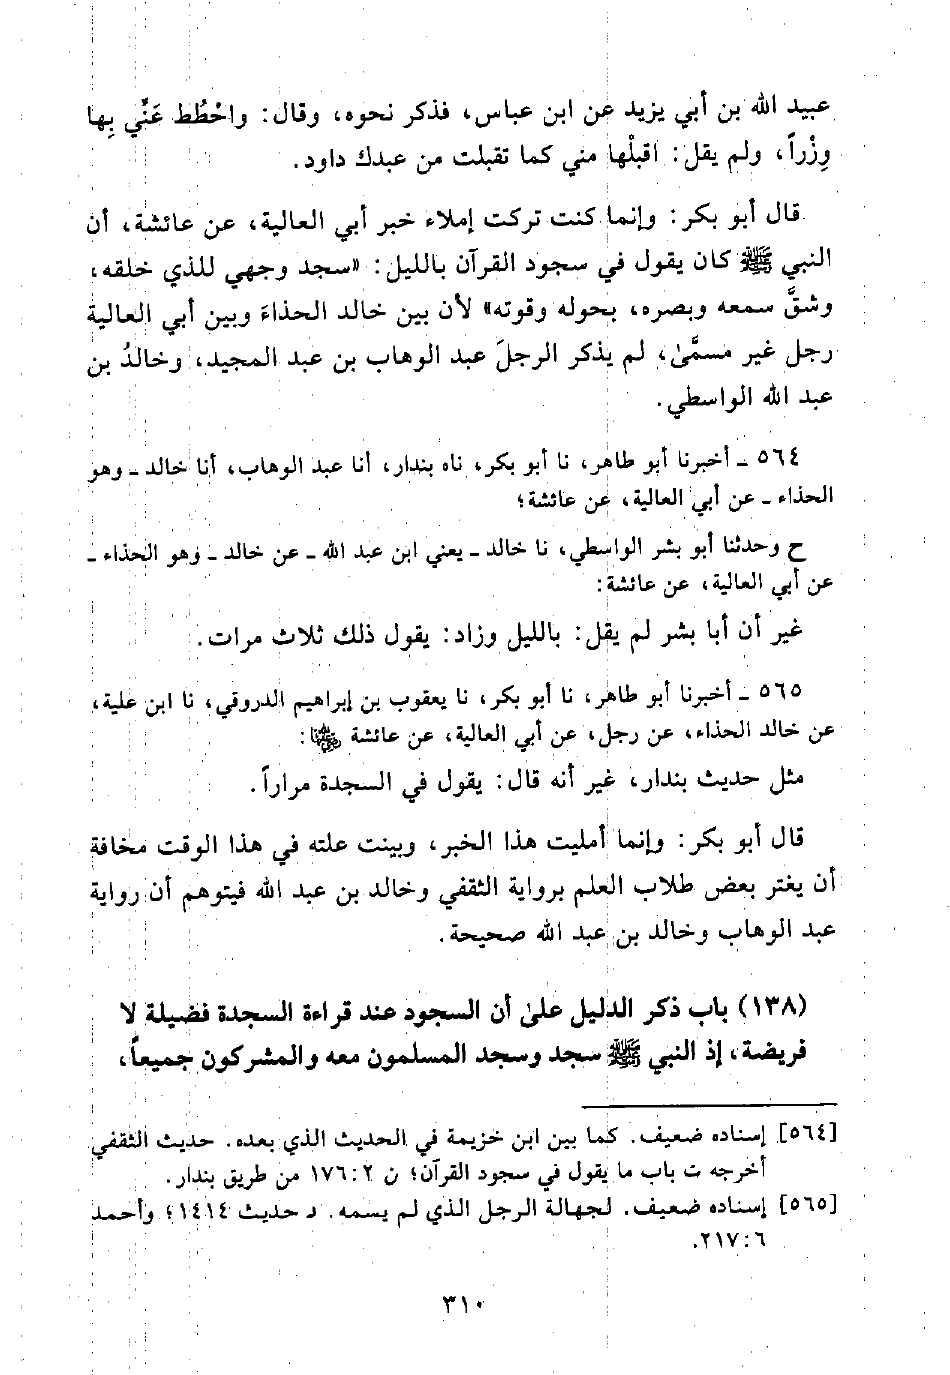 عبيد الله بن أبي يزيد عن ابن عباس، فذكر نحوه، وقال: واحْطُط عَنِّي بِها
وِزْراً، ولم يقل: اقبلْها مني كما تقبلت من عبدك داود.
قال أبو بكر: وإنما كنت تركت إملاء خبر أبي العالية، عن عائشة، أن
النبي ﷺ كان يقول في سجود القرآن بالليل: «سجد وجهي للذي خلقه،
وشقَّ سمعه وبصره، بحوله وقوته» لأن بين خالد الحذاءَ وبين أبي العالية
رجل غير مسمَّىٰ، لم يذكر الرجلَ عبد الوهاب بن عبد المجيد، وخالدُ بن
عبد الله الواسطي.
٥٦٤ ـ أخبرنا أبو طاهر، نا أبو بكر، ناه بندار، أنا عبد الوهاب، أنا خالد ـ وهو
الحذاء ـ عن أبي العالية، عن عائشة؛
ح وحدثنا أبو بشر الواسطي، نا خالد ـ يعني ابن عبد الله ـ عن خالد ـ وهو الحذاء ـ
عن أبي العالية، عن عائشة:
غير أن أبا بشر لم يقل: بالليل وزاد: يقول ذلك ثلاث مرات.
٥٦٥ ـ أخبرنا أبو طاهر، نا أبو بكر، نا يعقوب بن إبراهيم الدروقي، نا ابن علية،
عن خالد الحذاء، عن رجل، عن أبي العالية، عن عائشة رضي الله عنها:
مثل حديث بندار، غير أنه قال: يقول في السجدة مراراً.
قال أبو بكر: وإنما أمليت هذا الخبر، وبينت علته في هذا الوقت مخافة
أن يغتر بعض طلاب العلم برواية الثقفي وخالد بن عبد الله فيتوهم أن رواية
عبد الوهاب وخالد بن عبد الله صحيحة.
(١٣٨) باب ذكر الدليل علىٰ أن السجود عند قراءة السجدة فضيلة لا
فريضة، إذ النبي ﷺ سجد وسجد المسلمون معه والمشركون جميعاً،
[٥٦٤] إسناده ضعيف. كما بين ابن خزيمة في الحديث الذي بعده. حديث الثقفي
أخرجه ت باب ما يقول في سجود القرآن؛ ن ٢: ١٧٦ من طريق بندار.
[٥٦٥] إسناده ضعيف. لجهالة الرجل الذي لم يسمه. د حديث ١٤١٤؛ وأحمد
٦: ٢١٧.
٣١٠